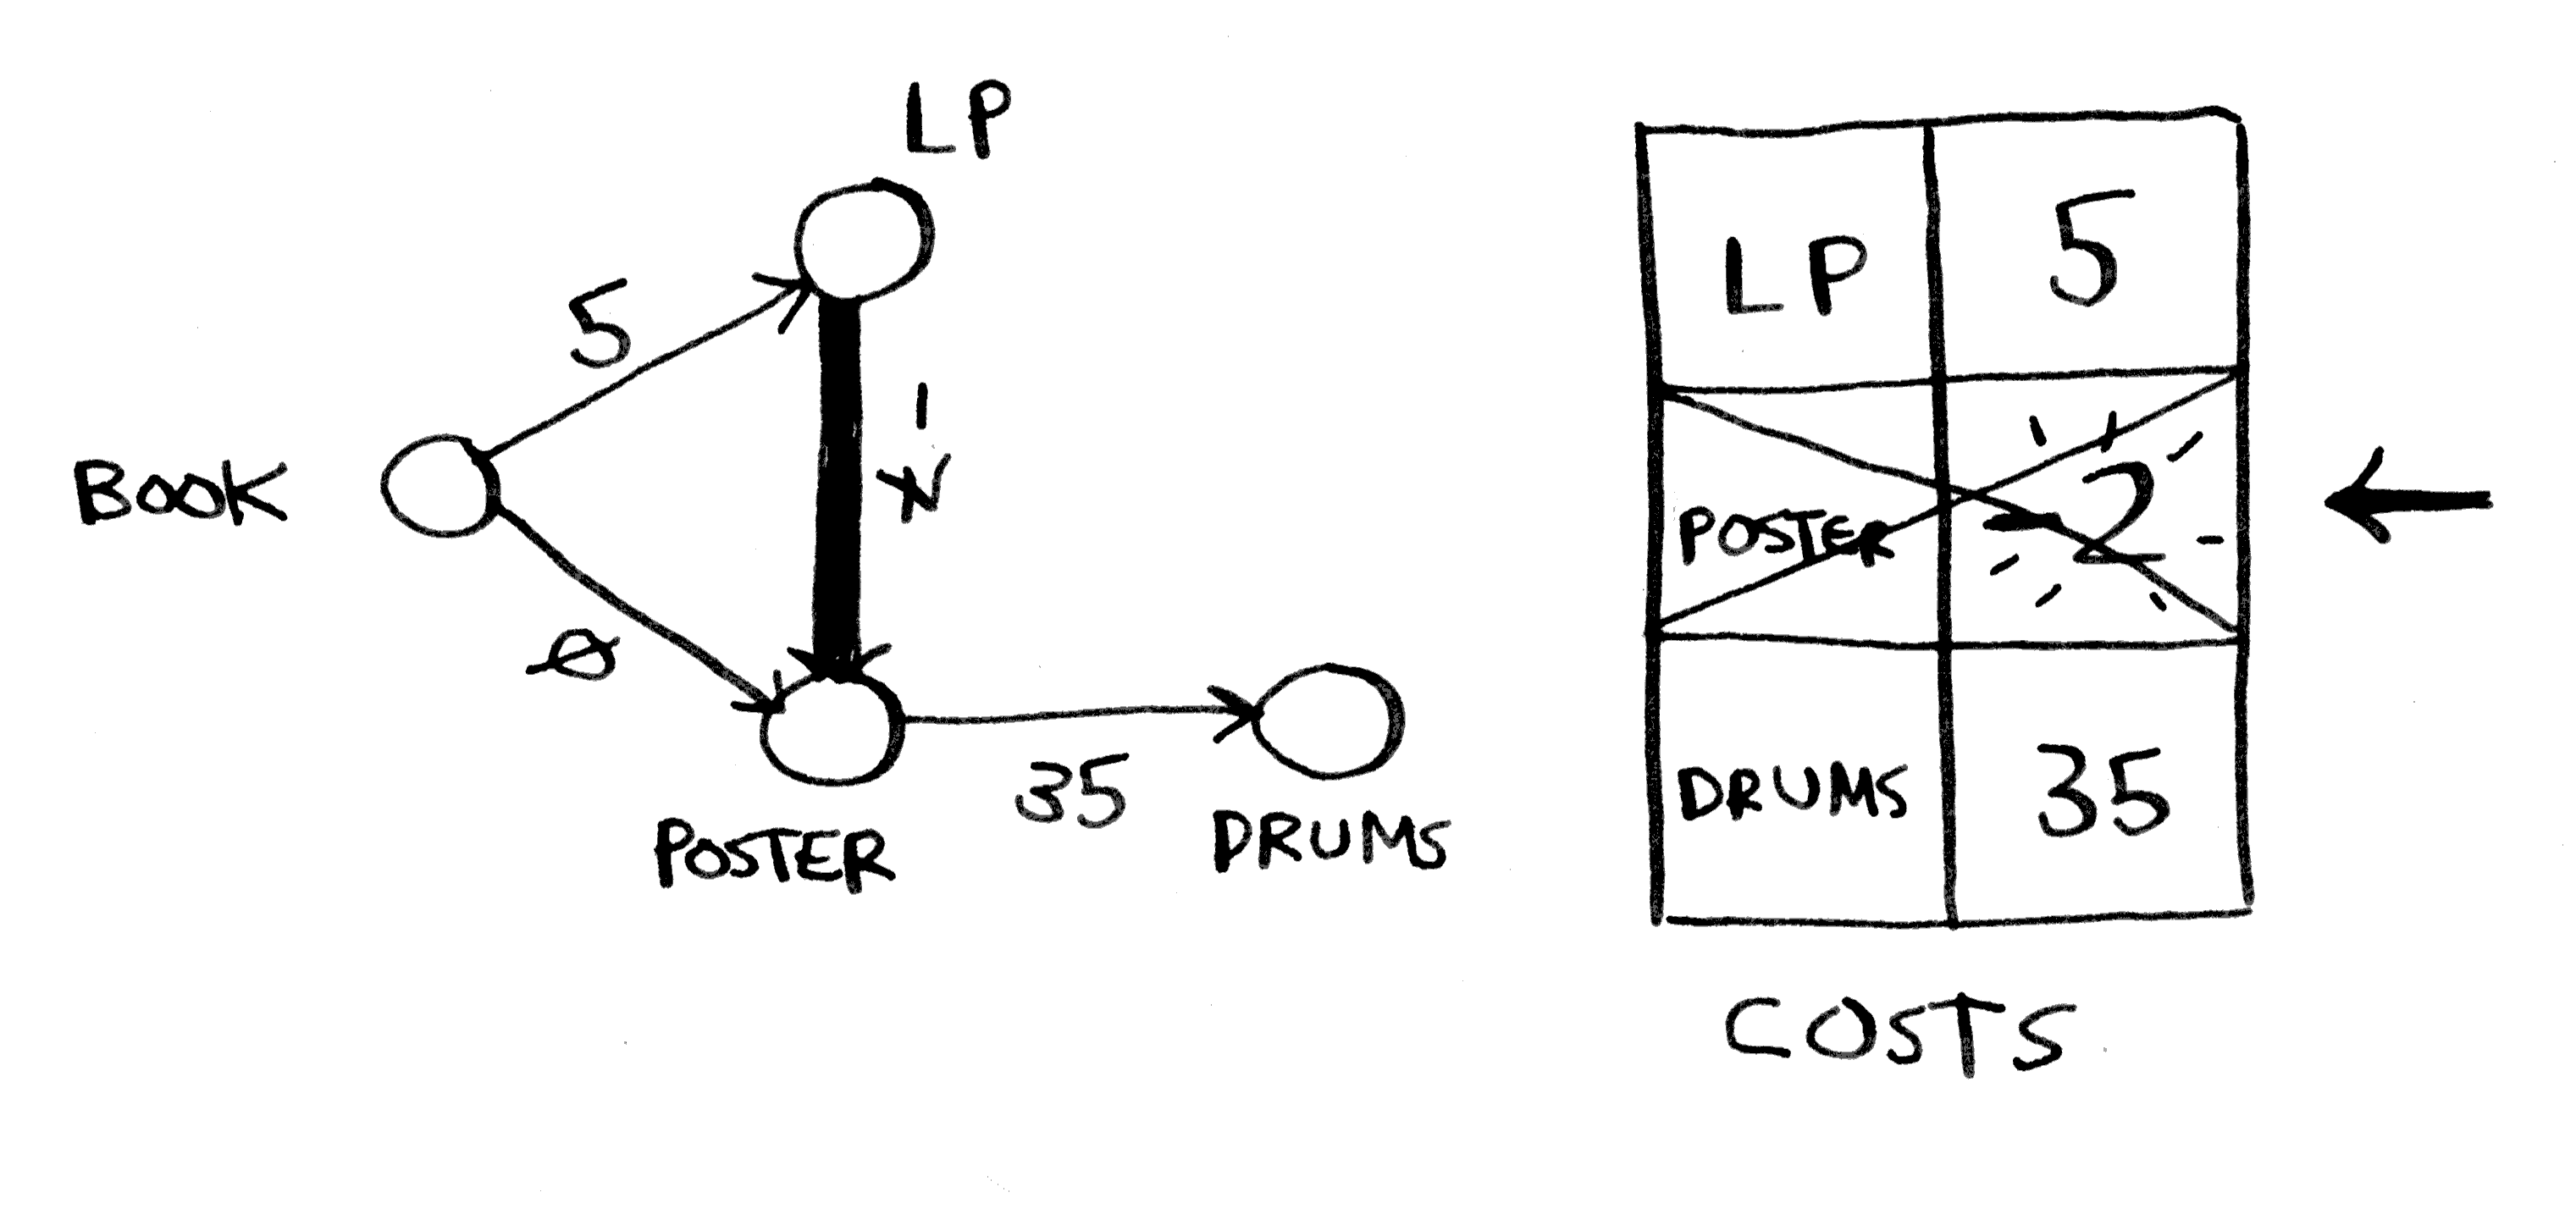 LP
5
-7
BOOK
0
35
POSTER
DRUMS
LP 5
POSTER -2
DRUMS 35
COSTS